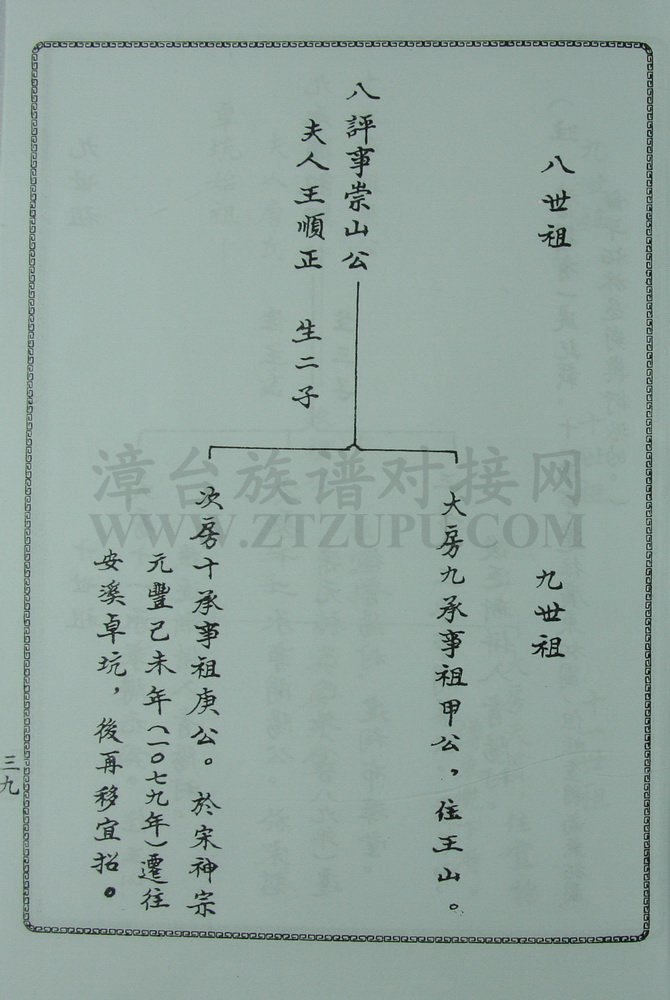 八世祖
八評事崇山公
夫人王順正 生二子
九世祖
大房九承事祖甲公，住王山。
次房十承事祖庚公。於宋神宗
元豐己未年(一〇七九年)遷往
安溪卓坑，後再移宜招。
三九
漳台族谱对接网
WWW.ZTZUPU.COM